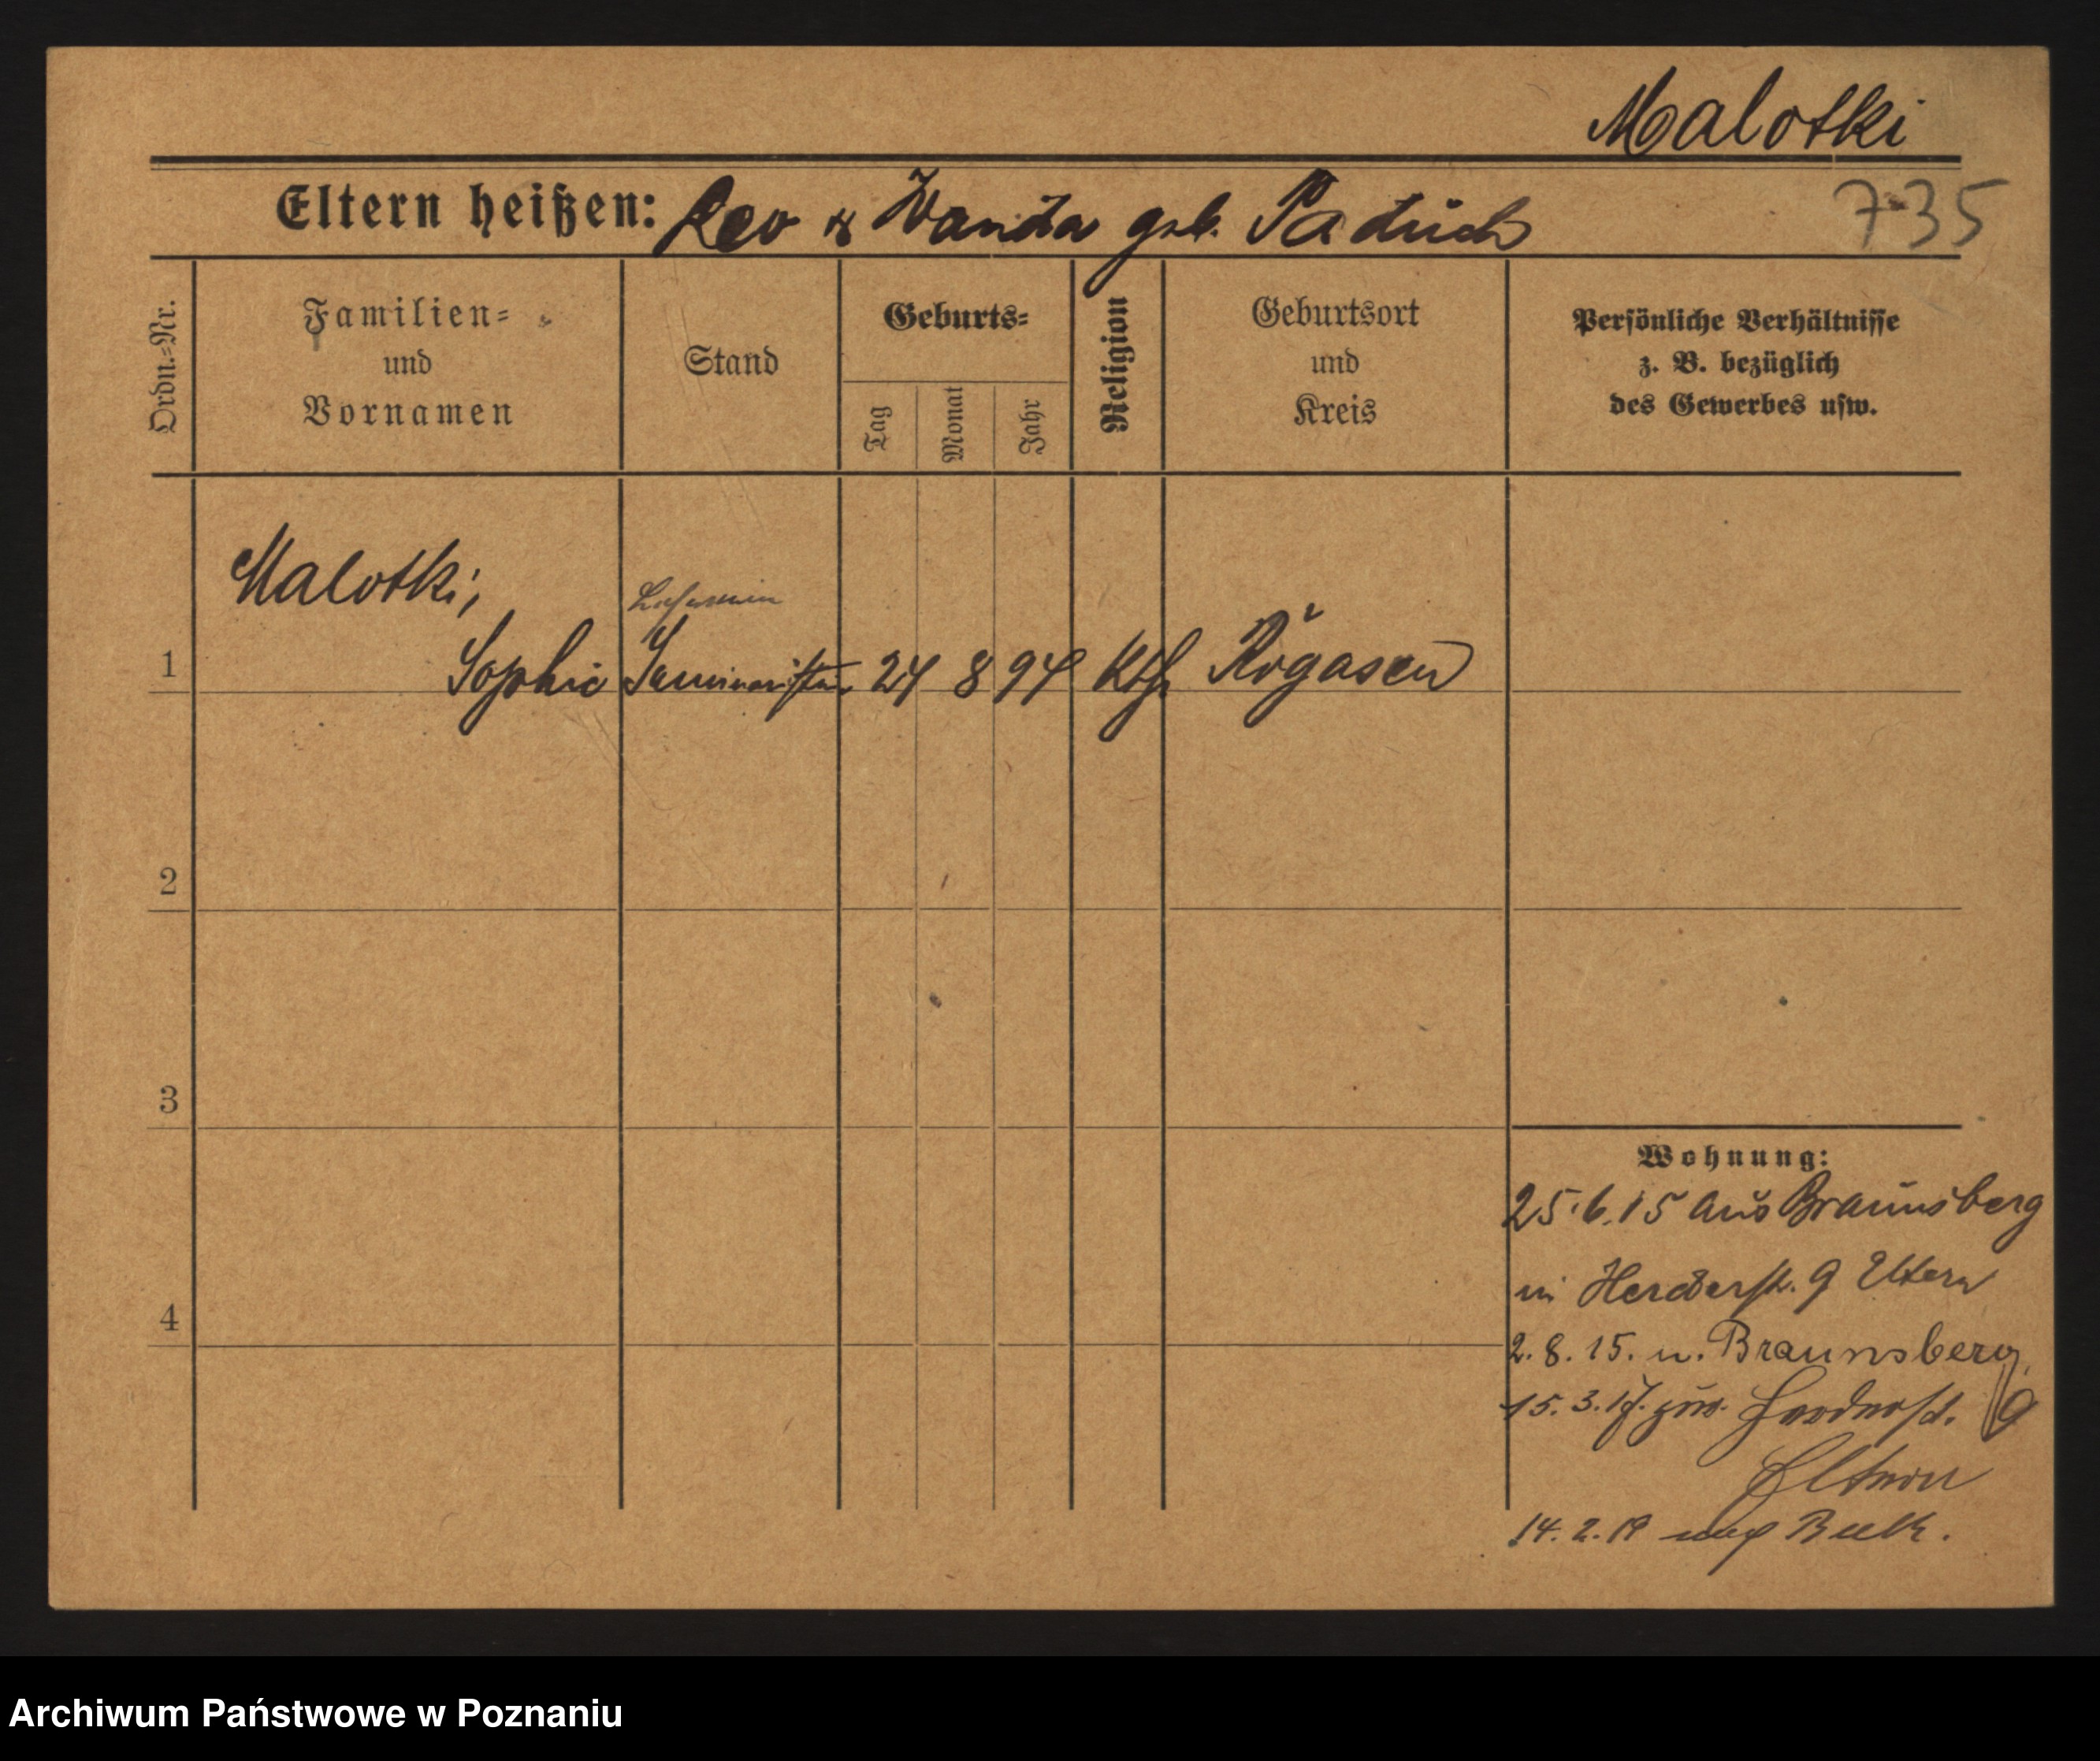 Malotki
Eltern heißen: Leo & Wanda geb. Paduch
735
Ordn.=Nr.
Familien=
und
Vornamen
Stand
Geburts=
Tag
Monat
Jahr
Religion
Geburtsort
und
Kreis
Persönliche Verhältnisse
z. B. bezüglich
des Gewerbes usw.
Malotki,
Lehrerin
1 Sophie Seminaristin 24 8 94 kth Rogasen
2
3
4
Wohnung:
25.6.15 aus Braunsberg
in Herderst. 9 Eltern
2.8.15. n. Braunsberg
15.3.17. zur. Herderst. 9
Eltern
14.2.19 nach
Archiwum Państwowe w Poznaniu